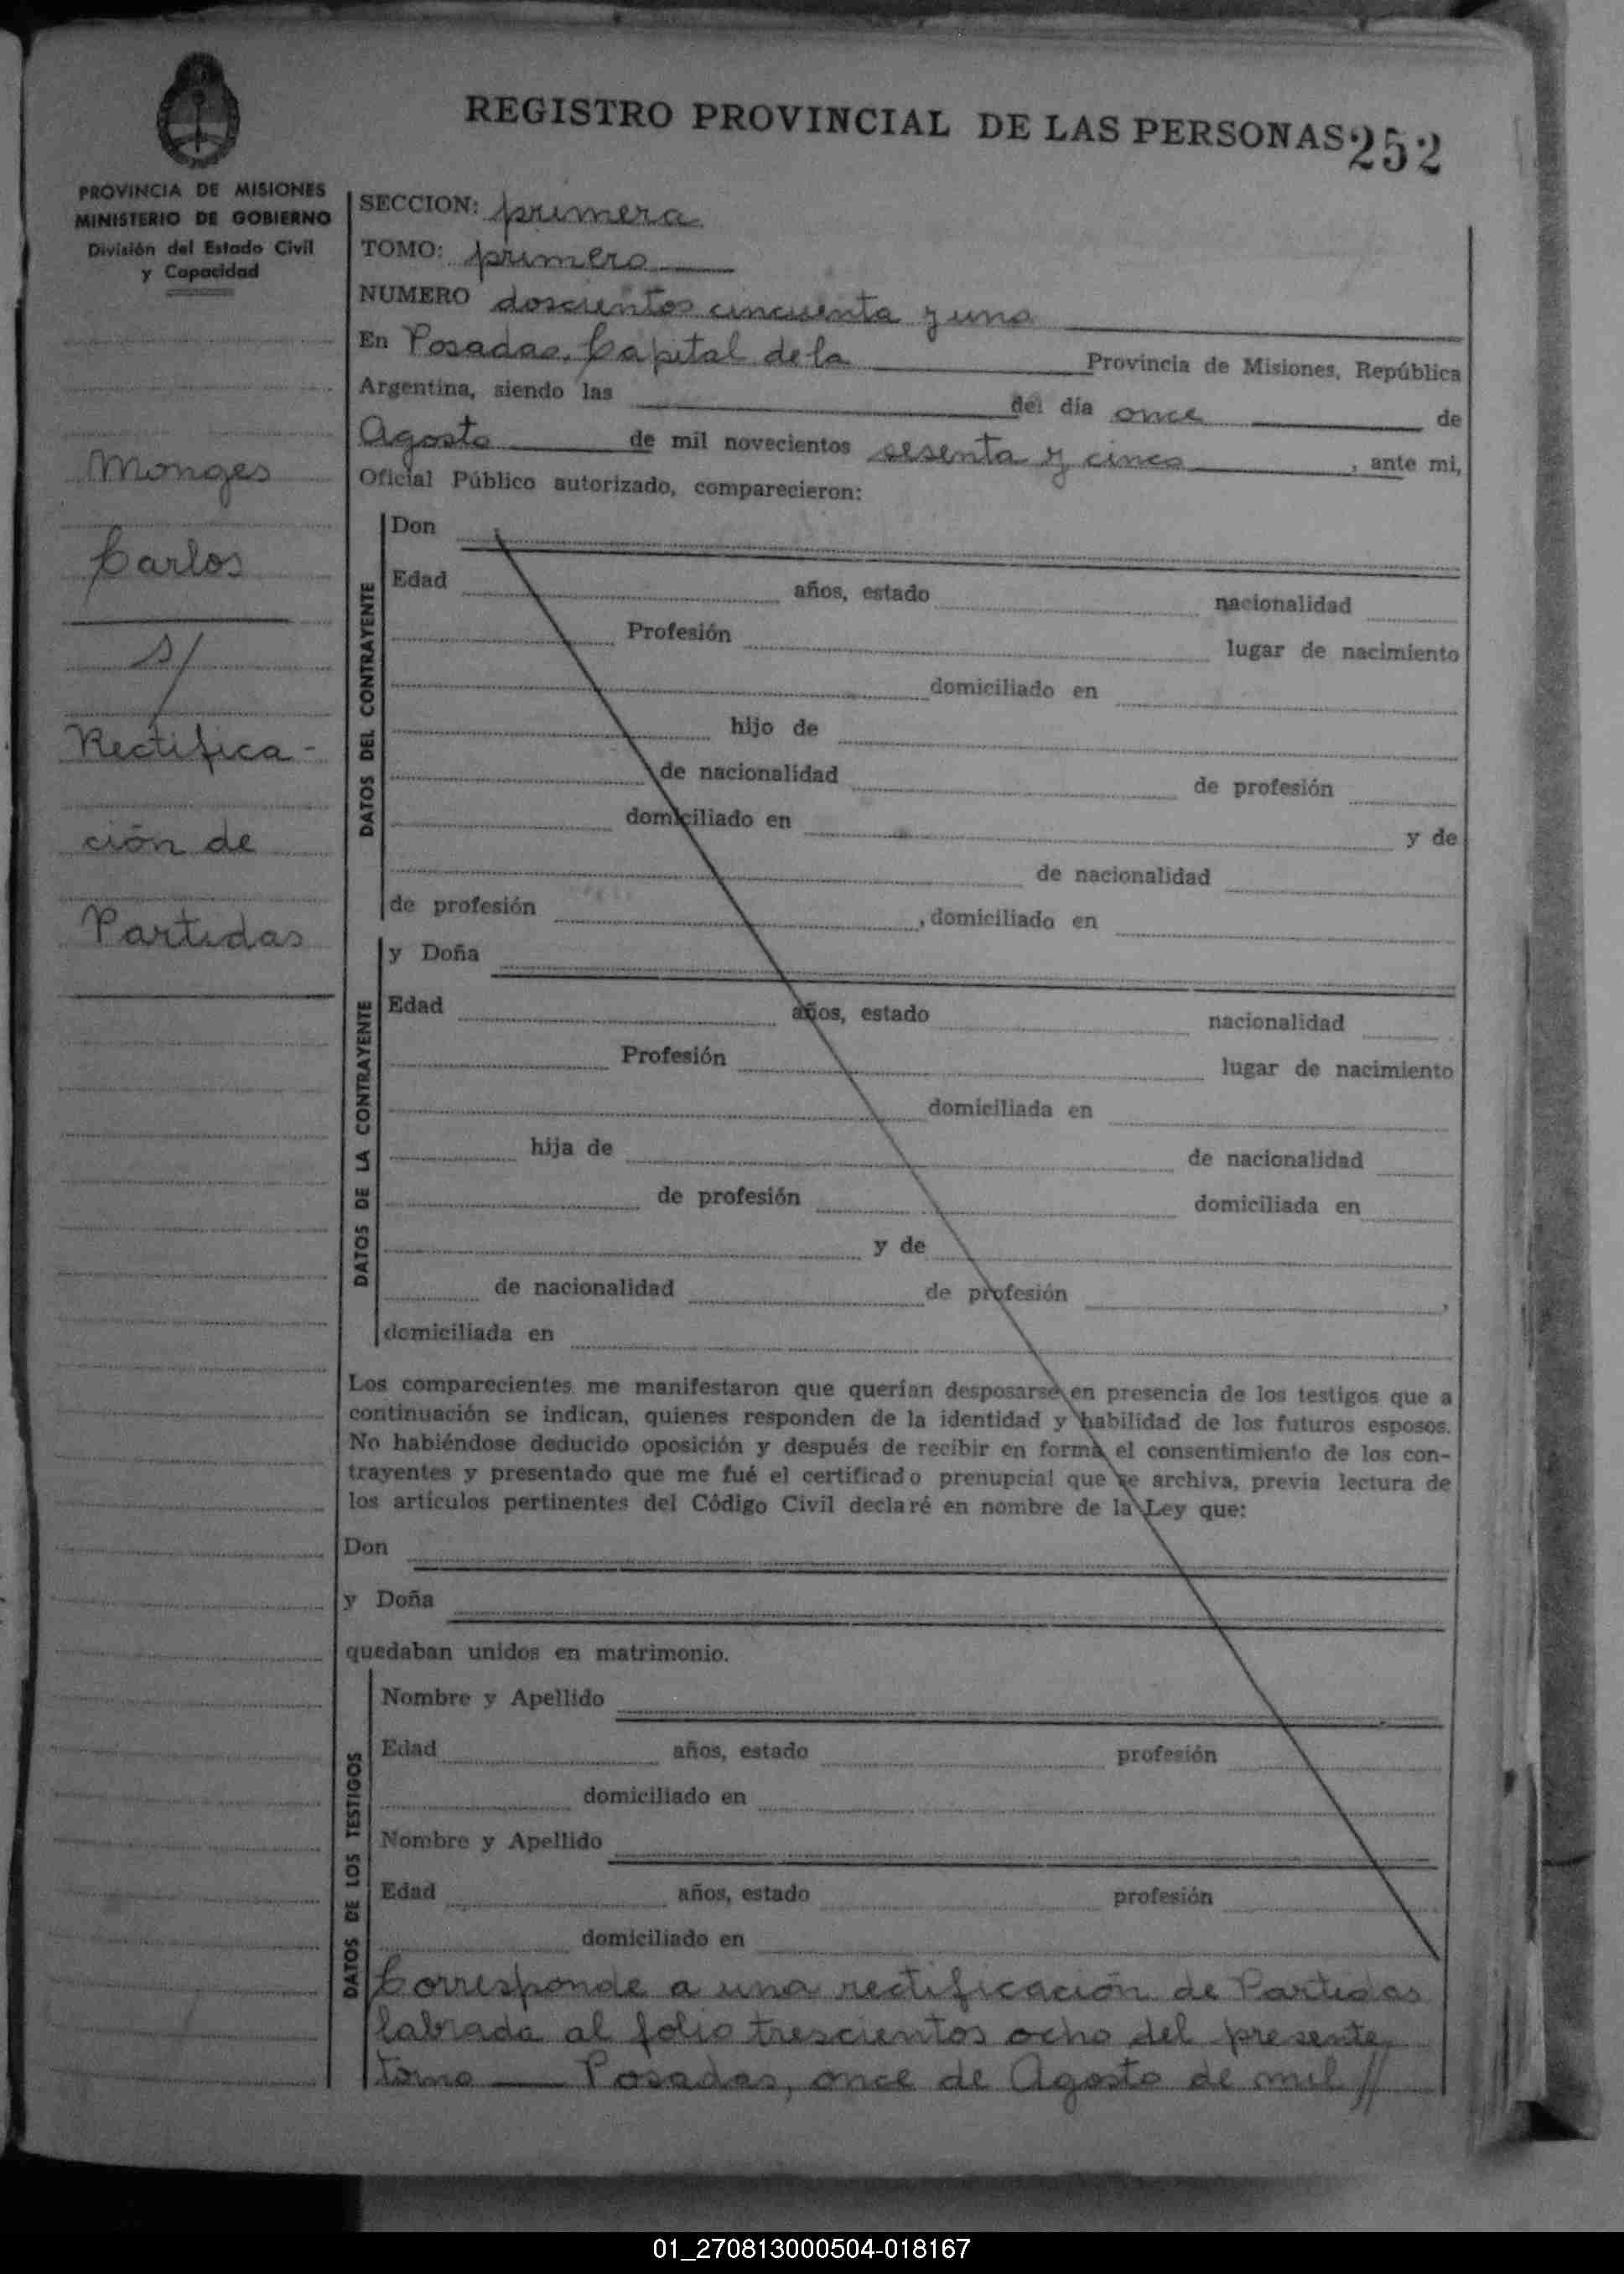 REGISTRO PROVINCIAL DE LAS PERSONAS 252
PROVINCIA DE MISIONES
MINISTERIO DE GOBIERNO
División del Estado Civil
y Capacidad
Monges
Carlos
s/
Rectifica-
ción de
Partidas
SECCION: primera
TOMO: primero
NUMERO doscientos cincuenta y uno
En Posadas, Capital de la Provincia de Misiones, República
Argentina, siendo las del día once de
Agosto de mil novecientos sesenta y cinco, ante mi,
Oficial Público autorizado, comparecieron:
DATOS DEL CONTRAYENTE
Don
Edad años, estado nacionalidad
Profesión lugar de nacimiento
domiciliado en
hijo de
de nacionalidad de profesión
domiciliado en y de
de nacionalidad
de profesión , domiciliado en
DATOS DE LA CONTRAYENTE
y Doña
Edad años, estado nacionalidad
Profesión lugar de nacimiento
domiciliada en
hija de de nacionalidad
de profesión domiciliada en
y de
de nacionalidad de profesión ,
domiciliada en
Los comparecientes me manifestaron que querían desposarse en presencia de los testigos que a
continuación se indican, quienes responden de la identidad y habilidad de los futuros esposos.
No habiéndose deducido oposición y después de recibir en forma el consentimiento de los con-
trayentes y presentado que me fué el certificado prenupcial que se archiva, previa lectura de
los artículos pertinentes del Código Civil declaré en nombre de la Ley que:
Don
y Doña
quedaban unidos en matrimonio.
DATOS DE LOS TESTIGOS
Nombre y Apellido
Edad años, estado profesión
domiciliado en
Nombre y Apellido
Edad años, estado profesión
domiciliado en
Corresponde a una rectificación de Partidas
labrada al folio trescientos ocho del presente
tomo Posadas, once de Agosto de mil //
01_270813000504-018167